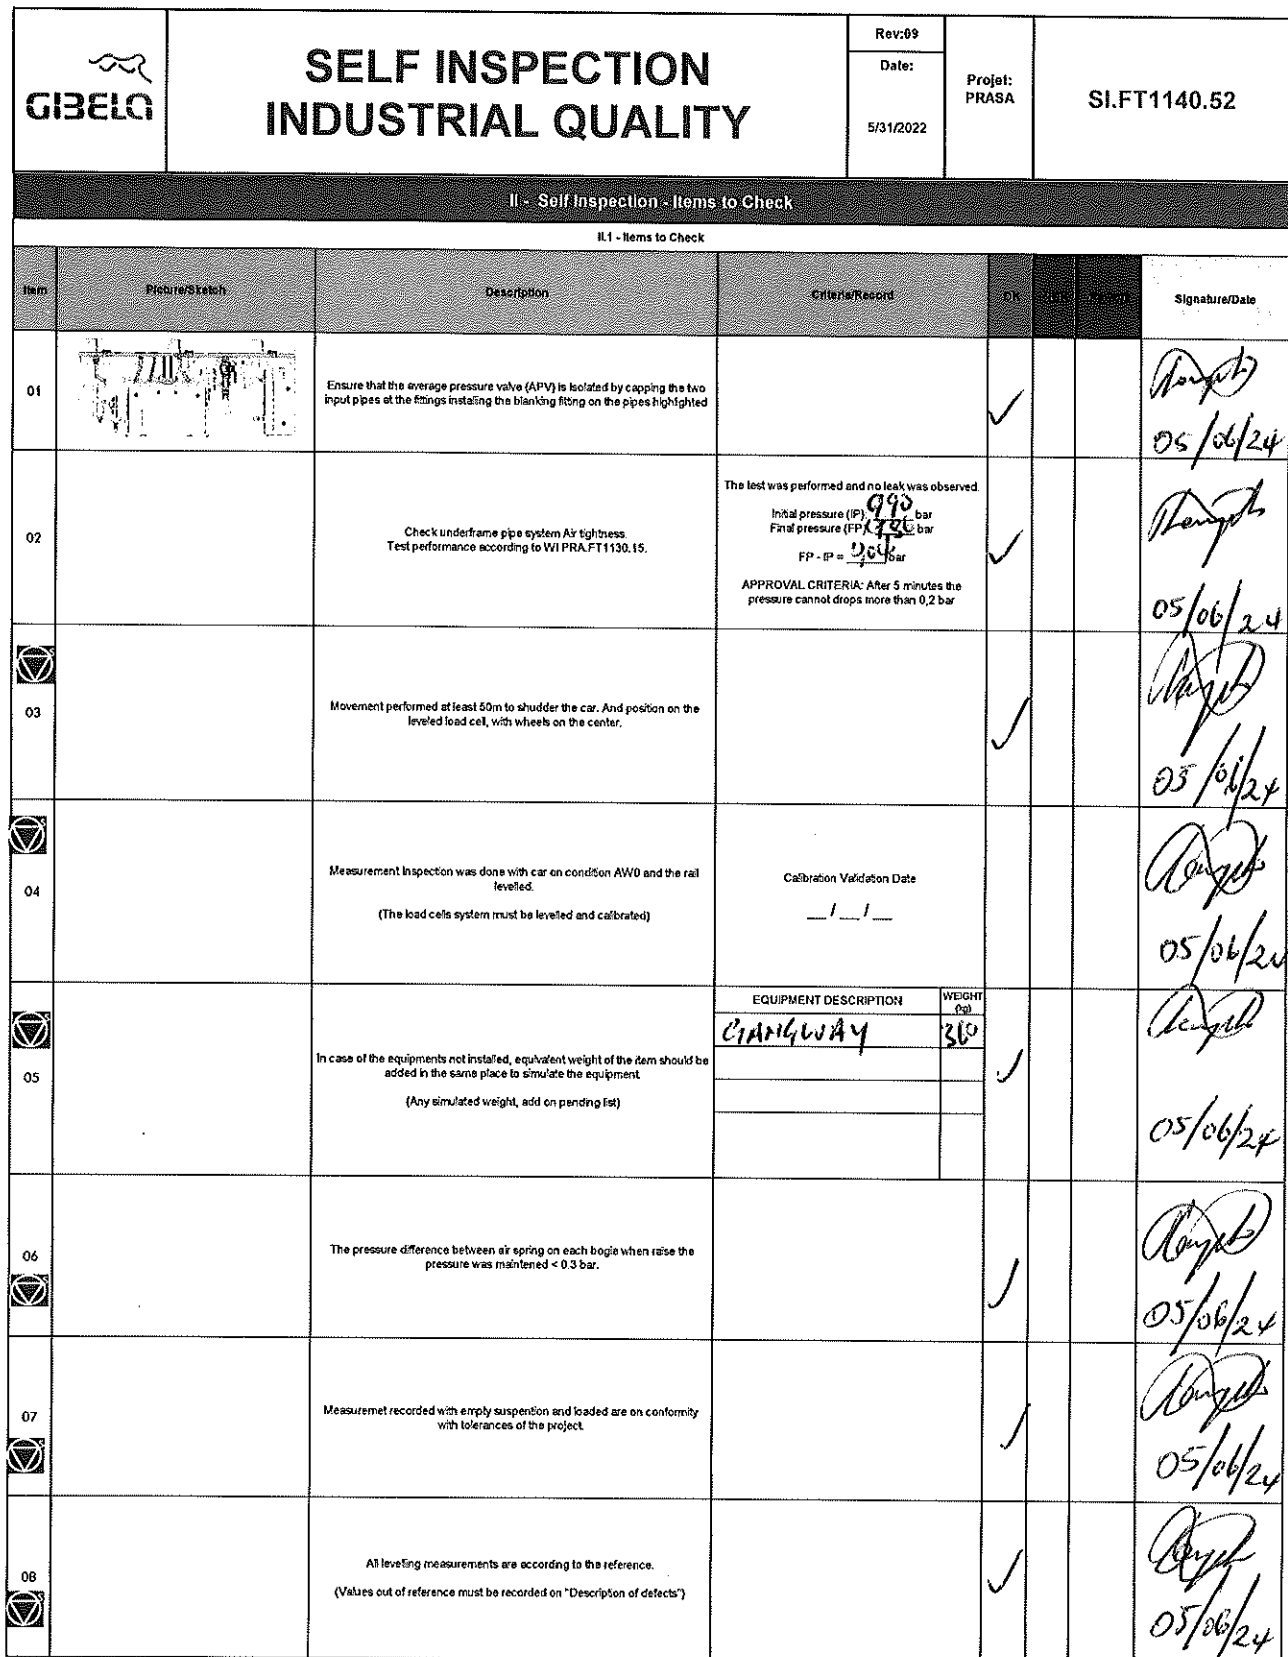 GIBELA
SELF INSPECTION
INDUSTRIAL QUALITY
Rev:09
Date:
5/31/2022
Projet:
PRASA
SI.FT1140.52
II - Self Inspection - Items to Check
II.1 - Items to Check
Item
Picture/Sketch
Description
Criteria/Record
OK
Signature/Date
01
Ensure that the average pressure valve (APV) is isolated by capping the two
input pipes at the fittings installing the blanking fitting on the pipes highlighted
05/06/24
02
Check underframe pipe system Air tightness.
Test performance according to WI PRA.FT1130.15.
The test was performed and no leak was observed.
Initial pressure (IP): 990 bar
Final pressure (FP) bar
FP - IP = 0,04 bar
APPROVAL CRITERIA: After 5 minutes the
pressure cannot drops more than 0,2 bar
05/06/24
03
Movement performed at least 50m to shudder the car. And position on the
leveled load cell, with wheels on the center.
05/06/24
04
Measurement Inspection was done with car on condition AW0 and the rail
levelled.
(The load cells system must be levelled and calibrated)
Calibration Validation Date
__/__/__
05/06/24
05
In case of the equipments not installed, equivalent weight of the item should be
added in the same place to simulate the equipment.
(Any simulated weight, add on pending list)
EQUIPMENT DESCRIPTION
WEIGHT
(kg)
GANGWAY
360
05/06/24
06
The pressure difference between air spring on each bogie when raise the
pressure was maintened < 0.3 bar.
05/06/24
07
Measuremet recorded with empty suspention and loaded are on conformity
with tolerances of the project.
05/06/24
08
All levelling measurements are according to the reference.
(Values out of reference must be recorded on "Description of defects")
05/06/24